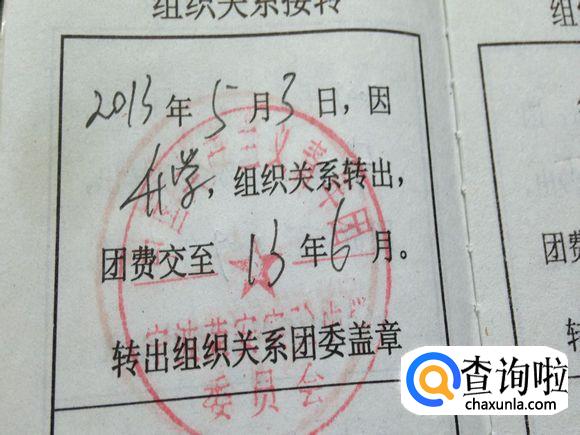 组织关系接转
2013年5月3日,因
升学,组织关系转出,
团费交至13年6月。
转出组织关系团委盖章
委员会
组织
团费
转
查询啦
chaxunla.com